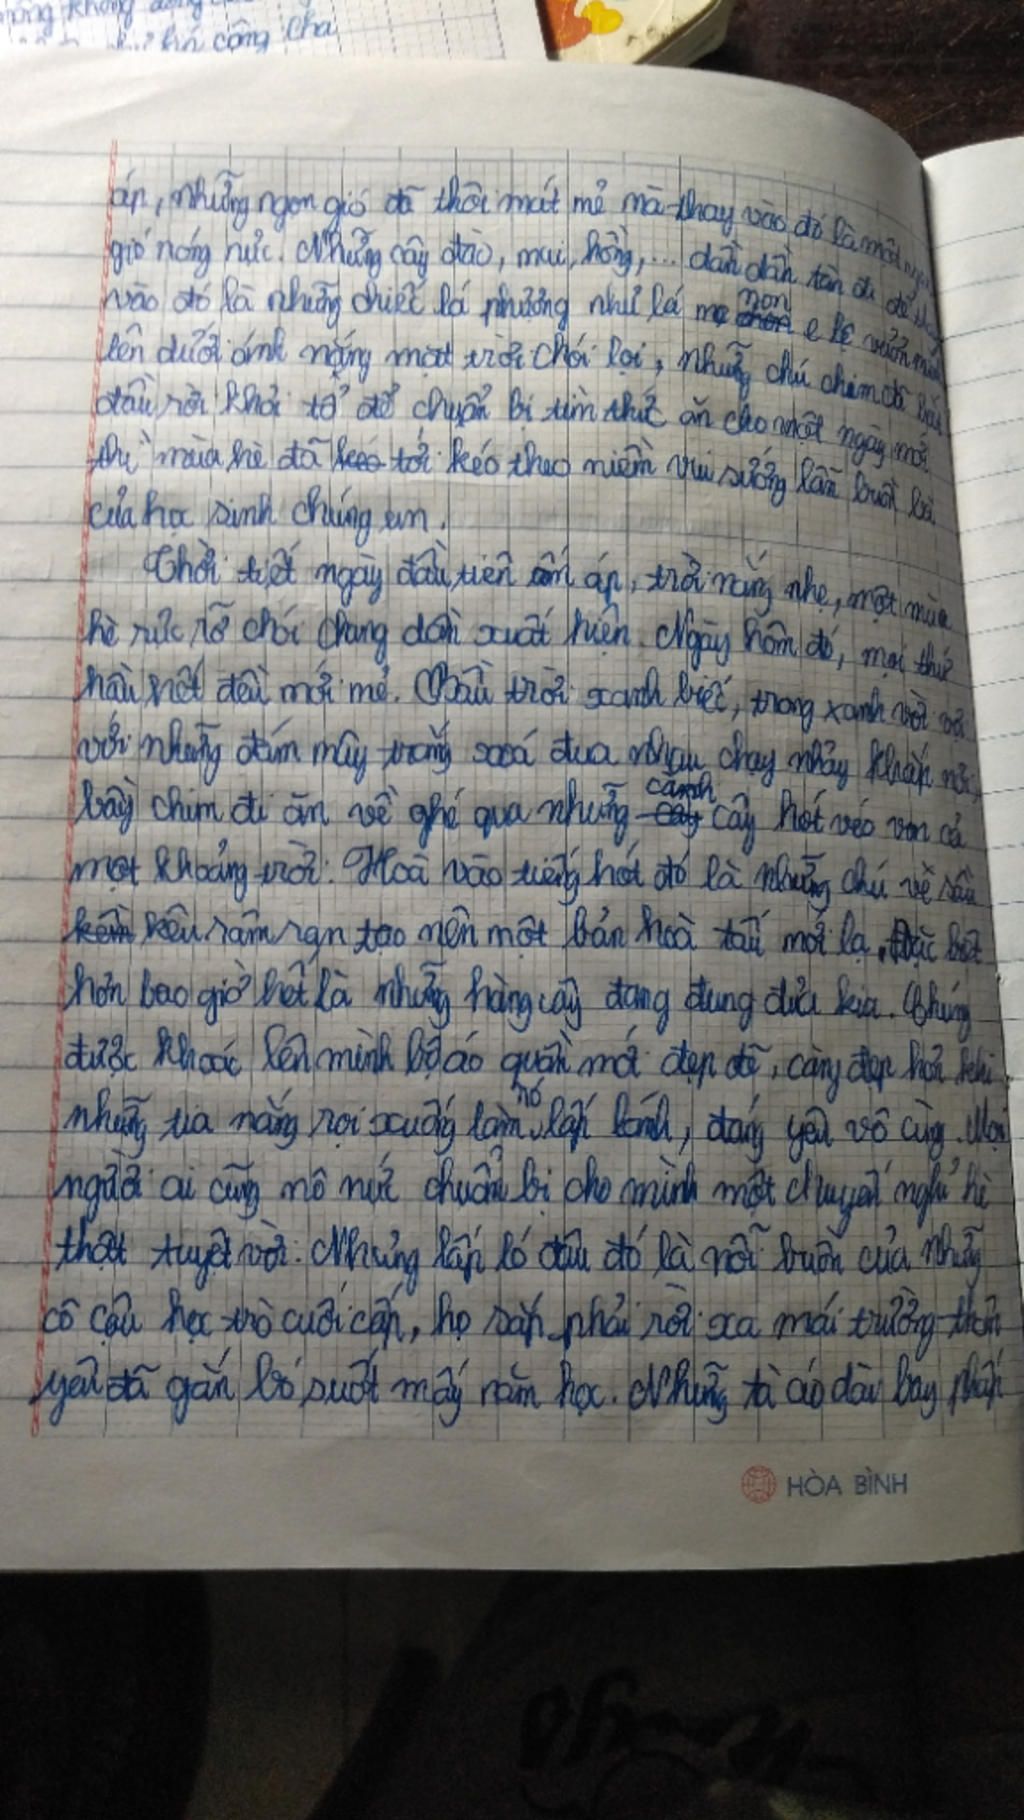 công cha
áp, những ngọn gió đã thôi mát mẻ mà thay vào đó là một
gió nóng nực. Những cây đào, mai, hồng,... dần dần tàn đi để
vào đó là những chiếc lá phượng như lá me non e lệ vươn mình
lên dưới ánh nắng mặt trời chói lọi, những chú chim đã bắt
đầu rời khỏi tổ để chuẩn bị tìm thức ăn cho một ngày mới
thì mùa hè đã tới kéo theo niềm vui sướng lẫn buồn bã
của học sinh chúng em.
Thời tiết ngày đầu tiên ấm áp, trời nắng nhẹ, một mùa
hè rực rỡ chói chang dần xuất hiện. Ngày hôm đó, mọi thứ
hầu hết đều mới mẻ. Bầu trời xanh biếc, trong xanh vời vợi
với những đám mây trắng xoá đua nhau chạy nhảy khắp nơi,
bầy chim đi ăn về ghé qua những cành cây hót véo von cả
một khoảng trời. Hoà vào tiếng hót đó là những chú ve sầu
kêu râm ran tạo nên một bản hoà tấu mới lạ. Đặc biệt
hơn bao giờ hết là những hàng cây đang đung đưa kia. Chúng
được khoác lên mình bộ áo quần mới đẹp đẽ, càng đẹp hơn khi
những tia nắng rọi xuống làm nó lấp lánh, đáng yêu vô cùng. Mọi
người ai cũng nô nức chuẩn bị cho mình một chuyến nghỉ hè
thật tuyệt vời. Nhưng lấp ló đâu đó là nỗi buồn của những
cô cậu học trò cuối cấp, họ sắp phải rời xa mái trường thân
yêu đã gắn bó suốt mấy năm học. Những tà áo dài bay phấp
HÒA BÌNH